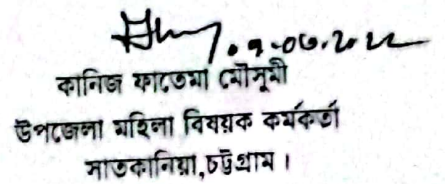 ০৭-০৩-২০২২
কানিজ ফাতেমা মৌসুমী
উপজেলা মহিলা বিষয়ক কর্মকর্তা
সাতকানিয়া,চট্টগ্রাম।